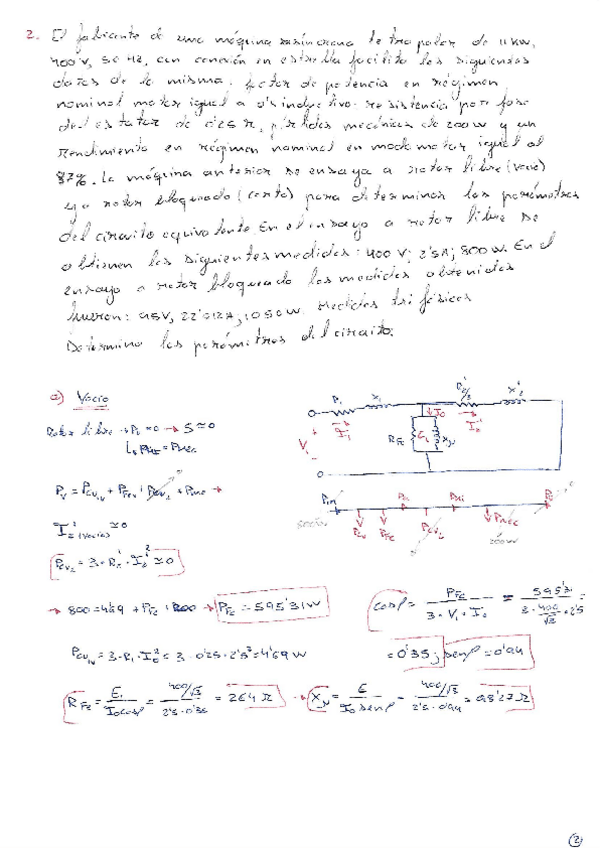 2. El fabricante de una máquina asíncrona tetrapolar de 11 KW,
400 V, 50 Hz, con conexión en estrella facilita los siguientes
datos de la misma: factor de potencia en régimen
nominal motor igual a inductivo. resistencia por fase
del estator de 0'25 Ω, pérdidas mecánicas de 200 W y un
rendimiento en régimen nominal en modo motor igual al
87%. La máquina anterior se ensaya a rotor libre (vacío)
y a rotor bloqueado (corto) para determinar los parámetros
del circuito equivalente. En el ensayo a rotor libre se
obtienen las siguientes medidas: 400 V; 2'5A; 800 W. En el
ensayo a rotor bloqueado las medidas obtenidas
fueron: 95V, 22'012A, 1050W. Medidas trifásicas
Determina los parámetros del circuito.
a) Vacío
Rotor libre → P₂ = 0 → S ≃ 0
↳ Pmi = Pmec
Pv = Pcu₁v + PFev + Pcu₂ + Pmec →
I₂' (vacío) ≃ 0
Pcu₂ = 3 · R₂' · I₂'² ≃ 0
R₁ X₁ R₂'/S X₂'
V₁ I₁ I₀ I₂' RFe E₁ Xμ
Pin Pa Pmi P₂
800W Pcu PFe Pcu₂ Pmec 200W
→ 800 = 4'69 + PFe + 200 → PFe = 595'31 W
cos φ = PFe / 3 · V₁ · I₀ = 595'31 / 3 · 400/√3 · 2'5
Pcu₁v = 3 · R₁ · I₀² = 3 · 0'25 · 2'5² = 4'69 W
= 0'35; sen φ = 0'94
RFe = E₁ / I₀ cos φ = 400/√3 / 2'5 · 0'35 = 264 Ω → Xμ = E / I₀ sen φ = 400/√3 / 2'5 · 0'94 = 98'27 Ω
2